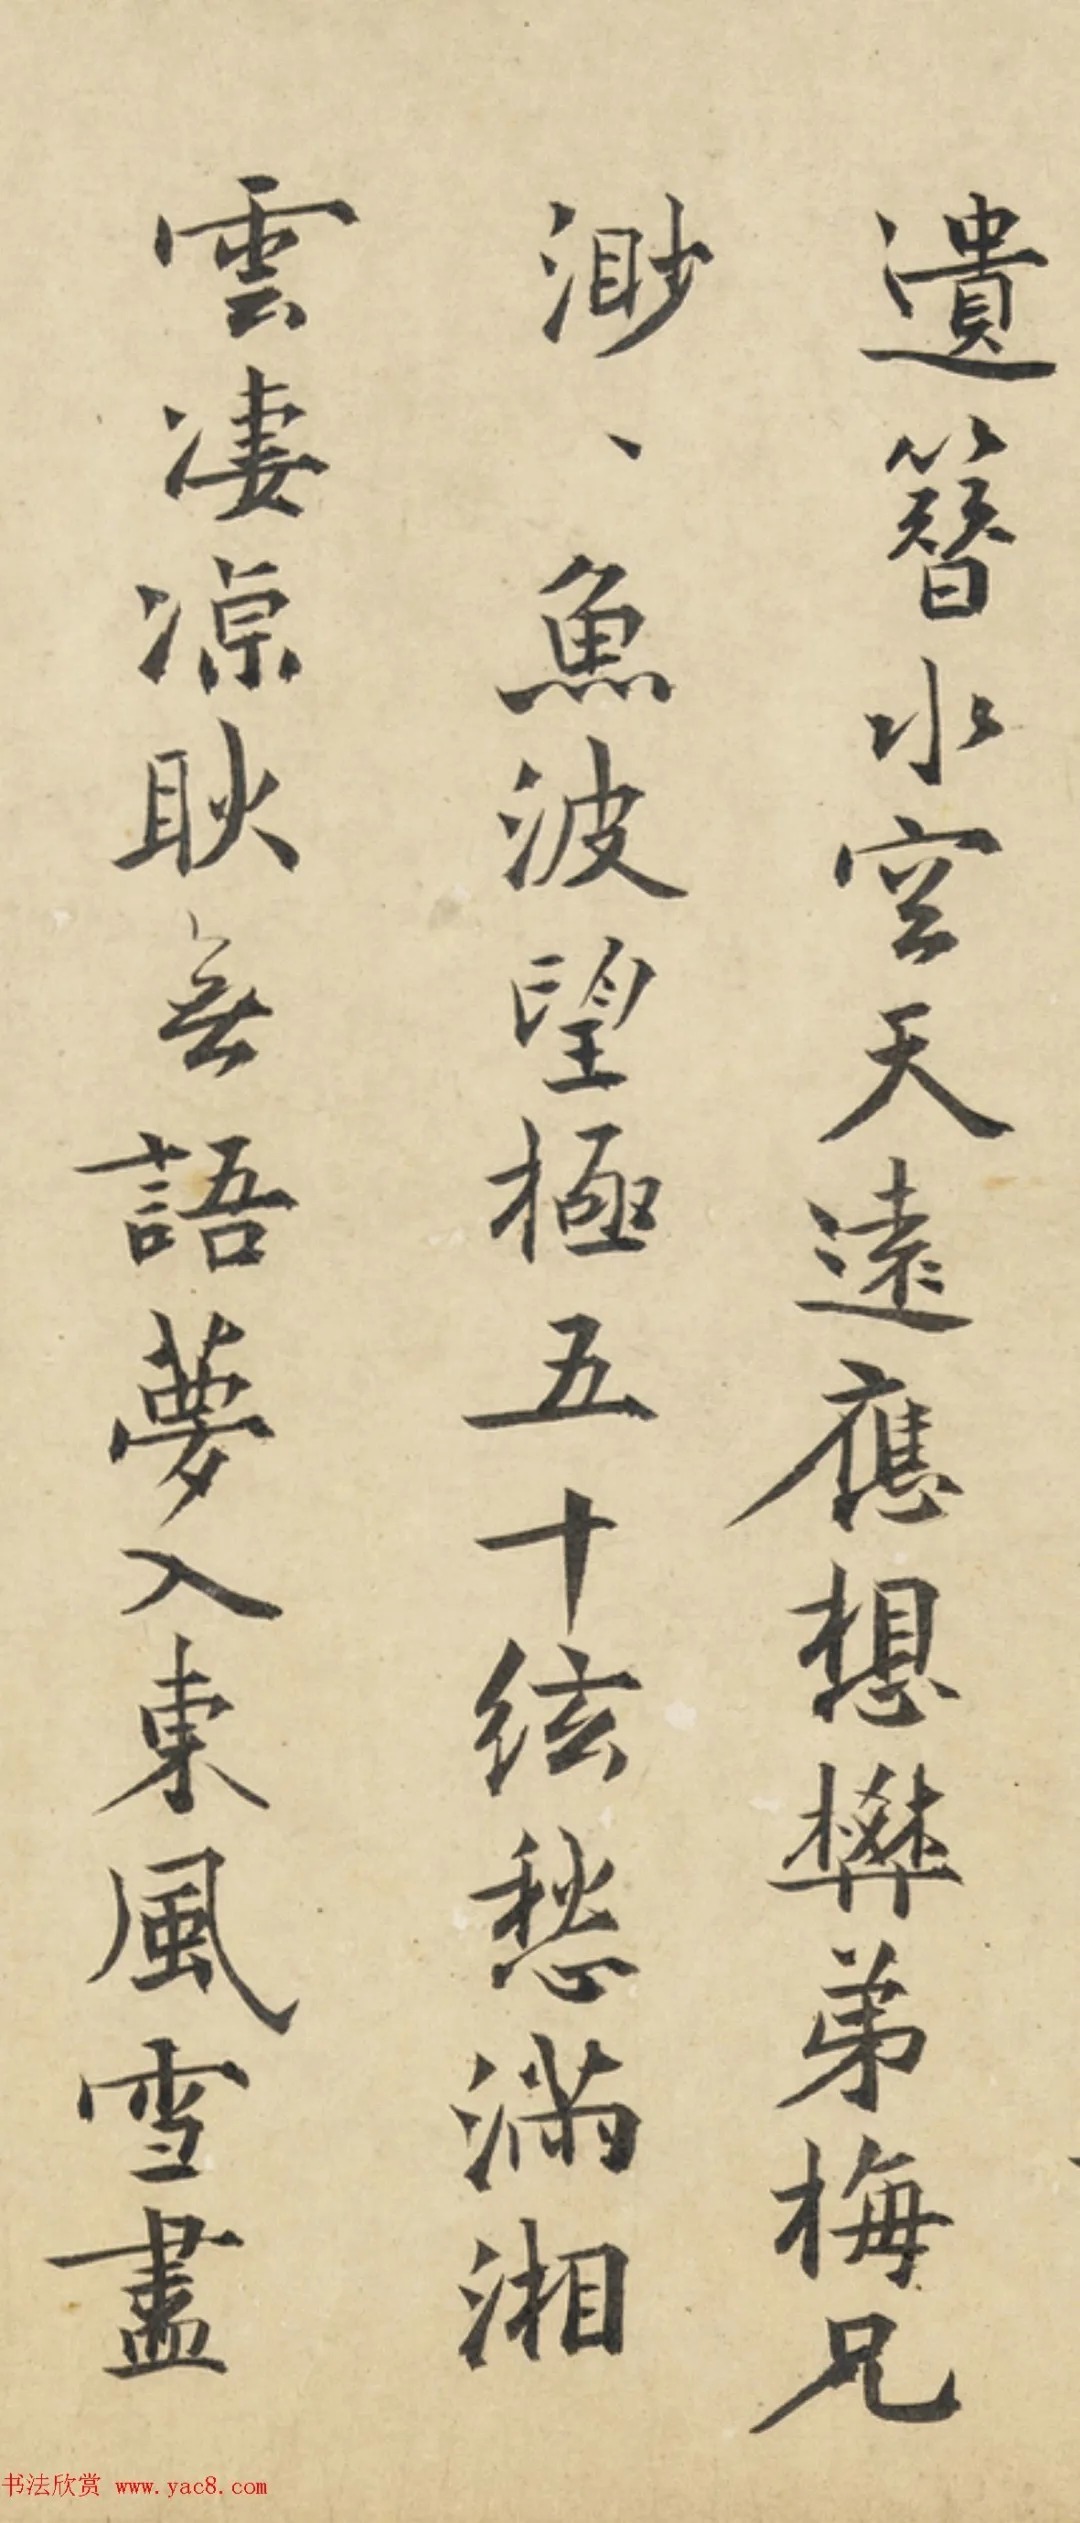 遺簪水空天遠應想礬弟梅兄
渺、魚波望極五十絃愁滿湘
雲淒涼耿無語夢入東風雪盡
书法欣赏 www.yac8.com